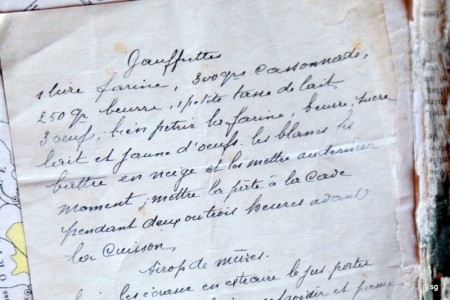 Gauffrettes
1 livre farine, 300grs Cassonnade,
250 gr beurre, 1 petite tasse de lait,
3 oeufs, bien petrir la farine, beurre, sucre
lait et jaune d'oeufs, les blancs les
battre en neige et les mettre au dernier
moment, mettre la pâte à la Cave
pendant deux ou trois heures avant
la Cuisson,
Sirop de mûres.
les écraser en extraire le jus, porter
et passer
sg